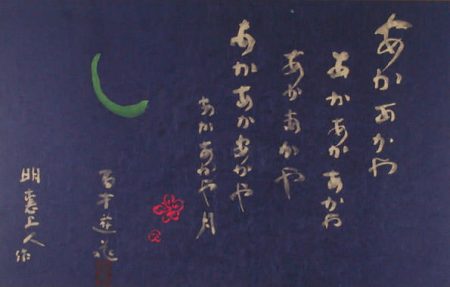 あかあかや
あかあかあかや
あかあかや
あかあかあかや
あかあかや月
百才遊亀
明恵上人作